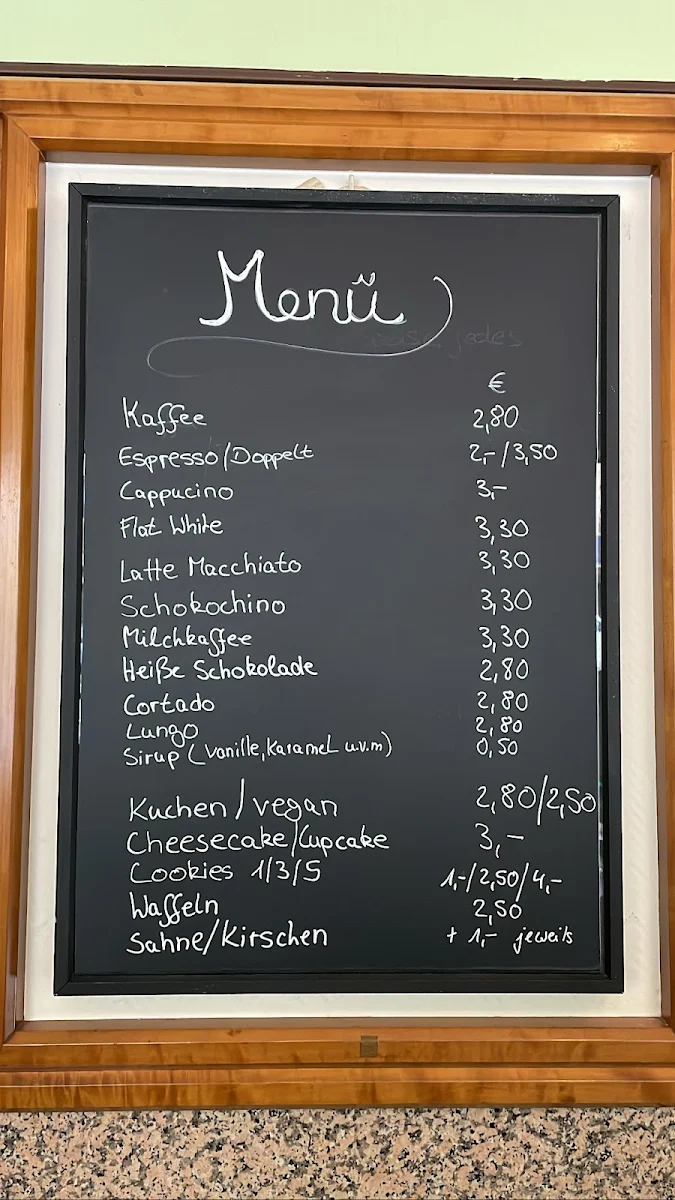 Menü
jedes
€
Kaffee 2,80
Espresso/Doppelt 2,-/3,50
Cappucino 3,-
Flat White 3,30
Latte Macchiato 3,30
Schokochino 3,30
Milchkaffee 3,30
Heiße Schokolade 2,80
Cortado 2,80
Lungo 2,80
Sirup (Vanille, Karamel u.v.m) 0,50
Kuchen/vegan 2,80/2,50
Cheesecake/Cupcake 3,-
Cookies 1/3/5 1,-/2,50/4,-
Waffeln 2,50
Sahne/Kirschen + 1,- jeweils